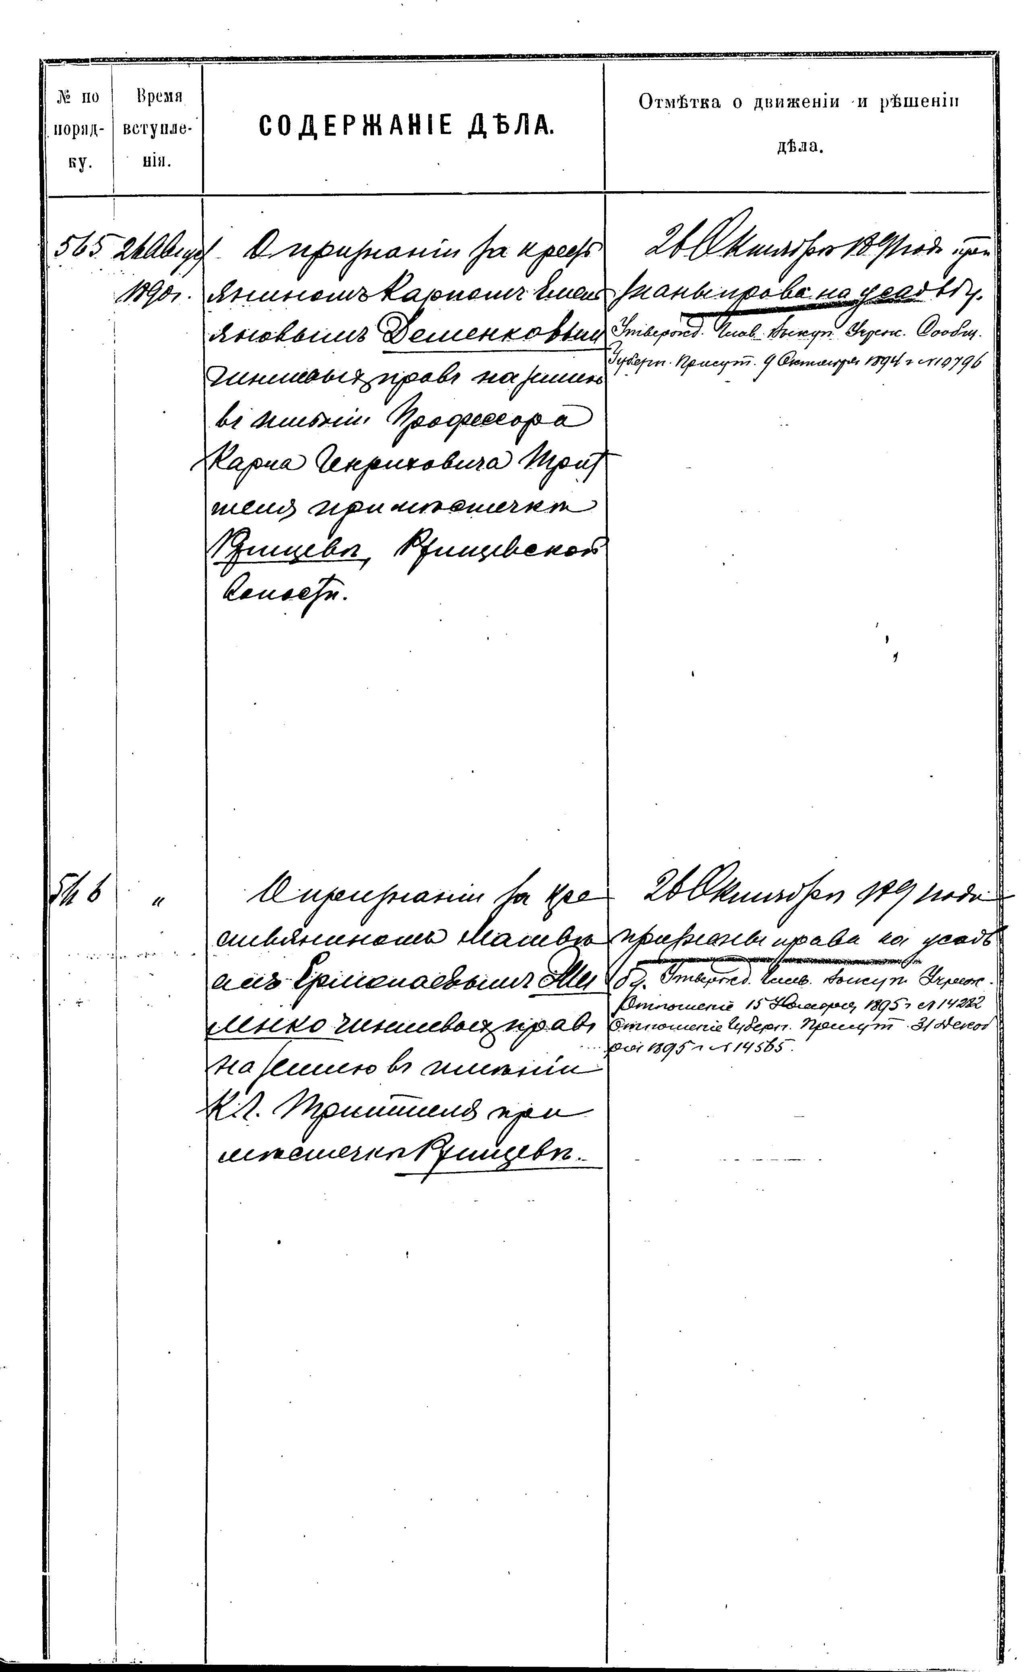 № по поряд- ку.
Время вступле- нія.
СОДЕРЖАНІЕ ДѢЛА.
Отмѣтка о движеніи и рѣшеніи
дѣла.
565
О признаніи за крест
яниномъ Карпомъ Емель
яновымъ Деменковымъ
чиншевыхъ правъ на землю
въ имѣніи Профессора
Карла Генриховича Трит
теля при мѣстечкѣ
Рясцевѣ, Рясцевской
волости.
26 Октября 1891 года приз
наны права на усадьбу.
Утвержд. Глав. Выкуп. Учреж. Сообщ.
Губерн. Присут. 9 Октября 1894 г. №10796
1890г.
566
"
О признаніи за кре
стьяниномъ Матвѣ
емъ Ермолаевымъ Ми
ленко чиншевыхъ правъ
на землю въ имѣніи
К.Г. Триттеля при
мѣстечкѣ Рясцевѣ.
26 Октября 1891 года
признаны права на усадь
бу. Утвержд. Глав. Выкуп. Учреж.
Отношеніе 15 Ноября 1895 г. №14222
Отношеніе Губерн. Присут. 31 Декаб
ря 1895 г. №14565.